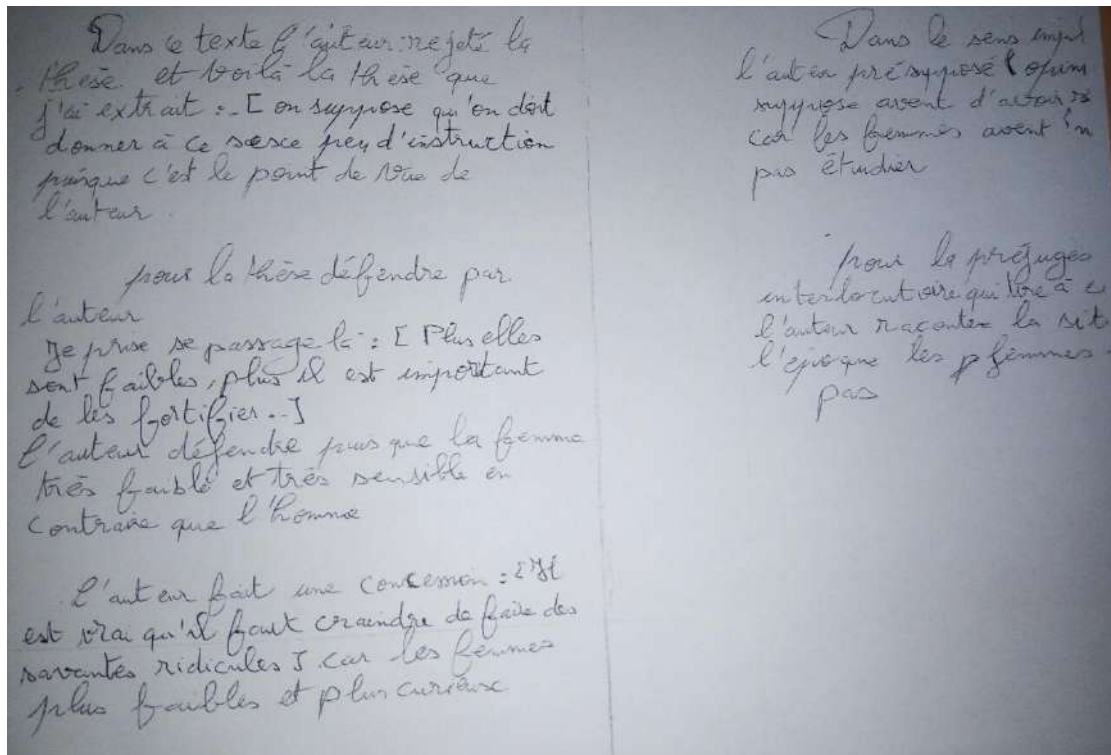 Dans ce texte l'auteur rejeté la
thèse et voilà la thèse que
j'ai extrait :- [ on suppose qu'on doit
donner à ce sexce peu d'instruction
puisque c'est le point de vue de
l'auteur.
pour la thèse défendre par
l'auteur
Je prise se passage là : [ Plus elles
sont faibles, plus il est important
de les fortifier...]
l'auteur défendre puis que la femme
très faible et très sensible en
contraire que l'homme
l'auteur fait une concession : [Il
est vrai qu'il faut craindre de faire des
savantes ridicules ] car les femmes
plus faibles et plus curieuse
Dans le sens impl
l'auteu présupposé l'opin
suppose avent d'avoir
car les femmes avent
pas étudier
pour la préjugés
interlocutoire qui à
l'auteur raconter la sit
l'époque les femmes
pas